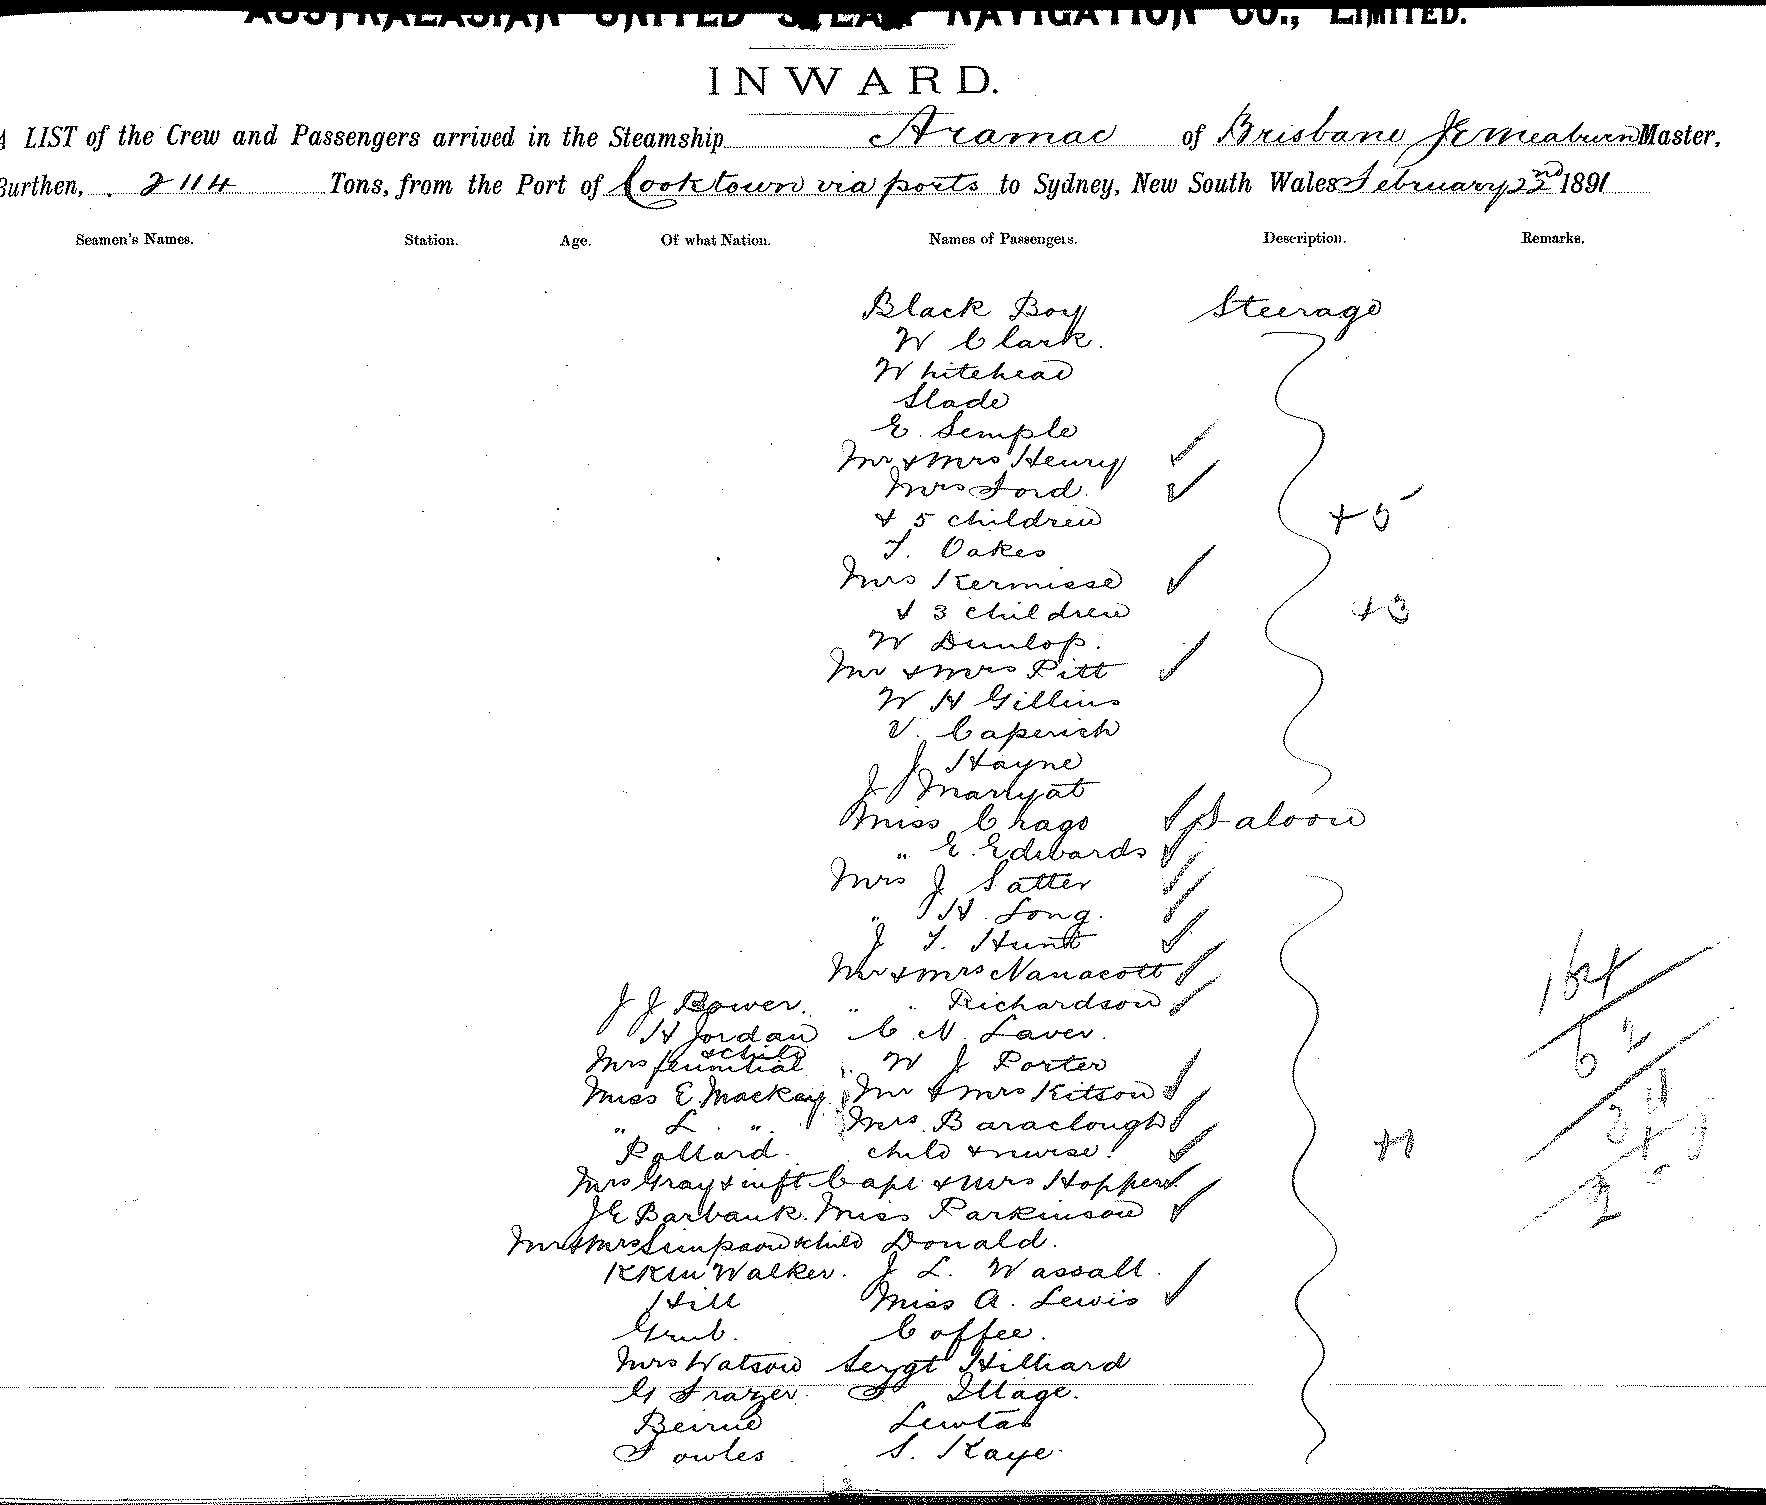 AUSTRALASIAN UNITED STEAM NAVIGATION CO., LIMITED.
INWARD.
A LIST of the Crew and Passengers arrived in the Steamship Aramac of Brisbane J E Meaburn Master,
Burthen, 2114 Tons, from the Port of Cooktown via ports to Sydney, New South Wales February 22nd 1891
Seamen's Names. Station. Age. Of what Nation. Names of Passengers. Description. Remarks.
Black Boy Steerage
W Clark.
Whitehead
Slade
E. Semple
Mr & Mrs Henry
Mrs Ford.
& 5 children +5
T. Oakes
Mrs Kermisse
& 3 children +3
W Dunlop.
Mr & Mrs Pitt
W H Gillins
V. Caperich
J Hayne
J Marryat
Miss Chago Saloon
" E. Edwards
Mrs J Satter
" H. Long.
J T. Hunt
Mr & Mrs Nanacott
J J Bower. " " Richardson
H Jordan C N. Laver.
& child
Mrs W J Porter
Miss E. Mackay Mr & Mrs Kitson
" L. " Mrs Baraclough
Pollard. child & nurse. +1
Mrs Gray & inft Capt & Mrs Hopper
J E Barbank. Miss Parkinson
Mr & Mrs Simpson & child Donald.
Walker. J L. Wassall.
Hill Miss A. Lewis
Grub. Coffee.
Mrs Watson Sergt Hilliard
G Frazer. F Illage.
Beirne Lewtas
Fowles S. Kaye.
164
62